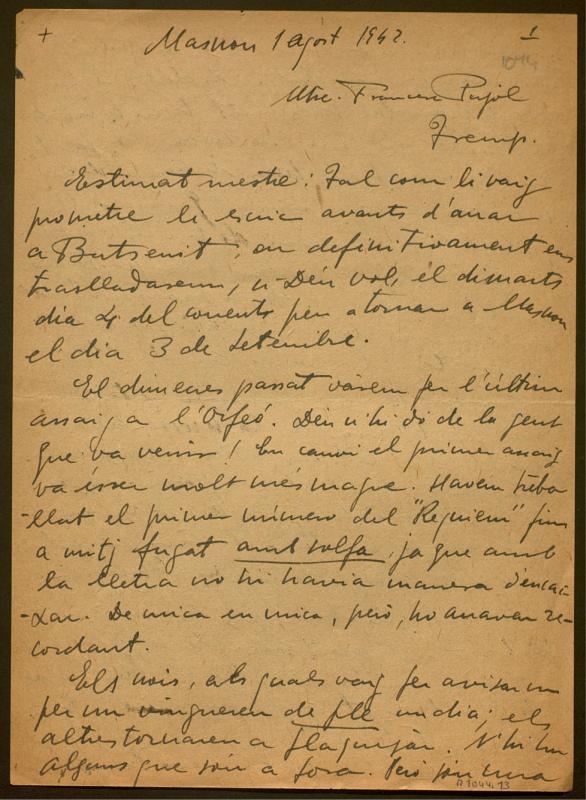 + Masnou 1 agost 1942. 1
1044
Mtre. Francesc Pujol
Tremp.
Estimat mestre: Tal com li vaig
prometre li escric avants d'anar
a Butsenit, on definitivament ens
traslladarem, si Déu vol, el dimarts
dia 4 del corrents per a tornar a Masnou
el dia 3 de setembre.
El dimecres passat vàrem fer l'últim
assaig a l'Orfeó. Déu n'hi dó de la gent
que va venir! En canvi el primer assaig
va ésser molt més magre. Havem treba-
-llat el primer número del "Requiem" fins
a mitj fugat amb solfa, ja que amb
la lletra no hi havia manera d'encai-
-xar. De mica en mica, però, ho anavan re-
cordant.
Els nois, als quals vaig fer avisar un
per un vingueren de ple un dia; els
altres tornaren a flaquejar. N'hi han
alguns que són a fora. Però són una
A 1044.13